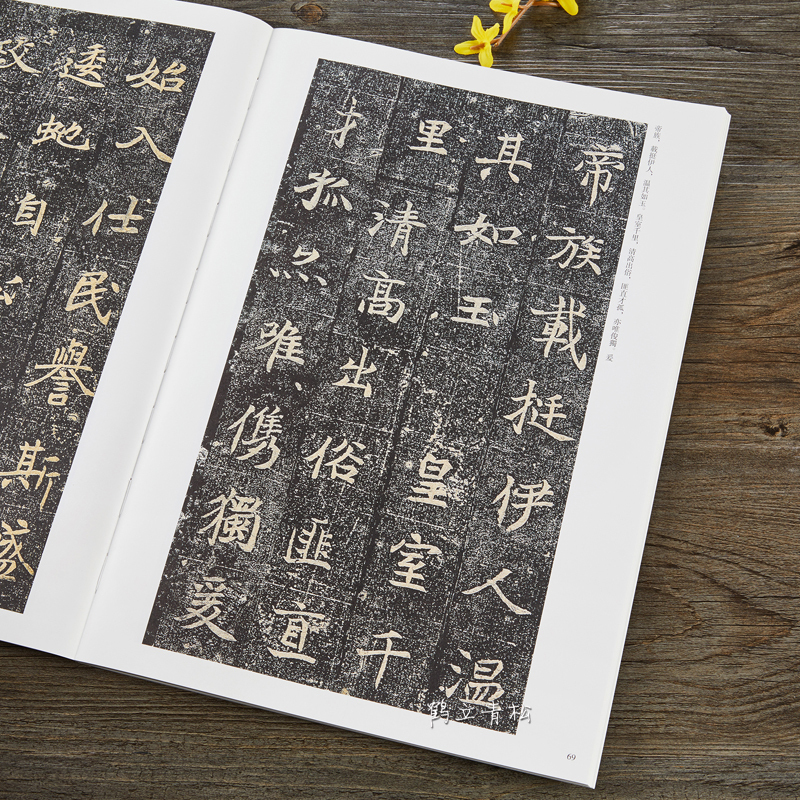 始入仕民譽斯盛
逶虵自
帝族載挺伊人温
其如玉皇室千
里清高出俗匪直
才孤亦唯儁獨爰
帝族，載挺伊人，温其如玉。皇室千里，清高出俗，匪直才孤，亦唯俊獨。爰
69
鹤立青松